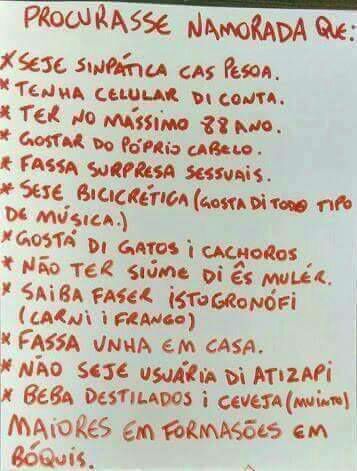 PROCURASSE NAMORADA QUE:
* SEJE SINPÁTICA CAS PESOA.
* TENHA CELULAR DI CONTA.
* TER NO MÁSSIMO 88 ANO.
* GOSTAR DO PÓPRIO CABELO.
* FASSA SURPRESA SESSUAIS.
* SEJE BICICRÉTICA (GOSTA DI TODO TIPO
DE MÚSICA.)
* GOSTÁ DI GATOS I CACHOROS
* NÃO TER SIÚME DI ÊS MULÉR.
* SAIBA FASER ISTOGRONÓFI
(CARNI I FRANGO)
* FASSA UNHA EM CASA.
* NÃO SEJE USUÁRIA DI ATIZAPI
* BEBA DESTILADOS I CEVEJA (MUINTO)
MAIORES EM FORMASÕES EM
BÓQUIS.